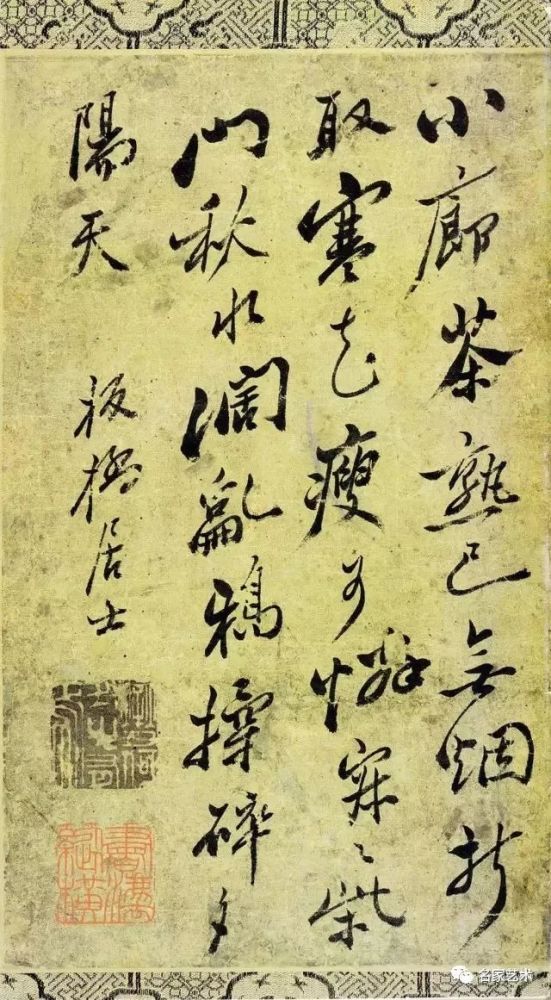 小廊茶熟已無烟折
取寒花瘦可憐寂〻柴
門秋水濶亂鴉揉碎夕
陽天
板橋居士
名家艺术